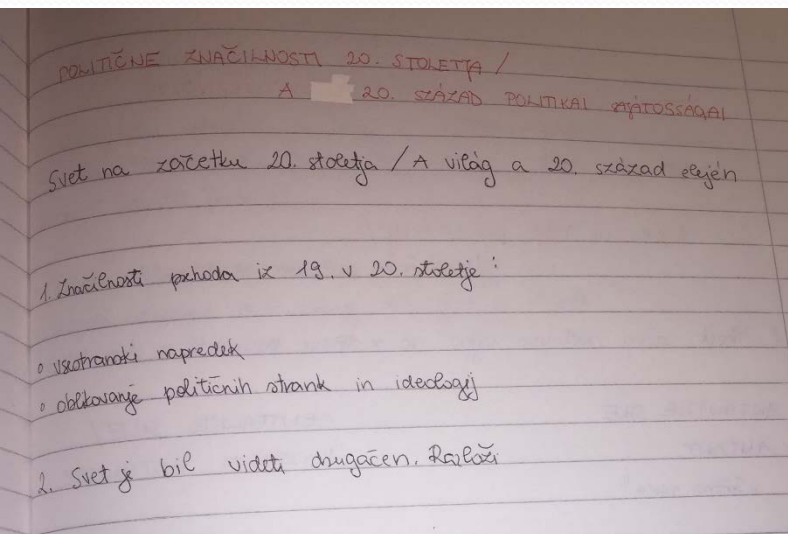 POLITIČNE ZNAČILNOSTI 20. STOLETJA /
A 20. SZÁZAD POLITIKAI SAJÁTOSSÁGAI
Svet na začetku 20. stoletja / A világ a 20. század elején
1. Značilnosti prehoda iz 19. v 20. stoletje:
◦ vsestranski napredek
◦ oblikovanje političnih strank in ideologij
2. Svet je bil videti drugačen. Razloži